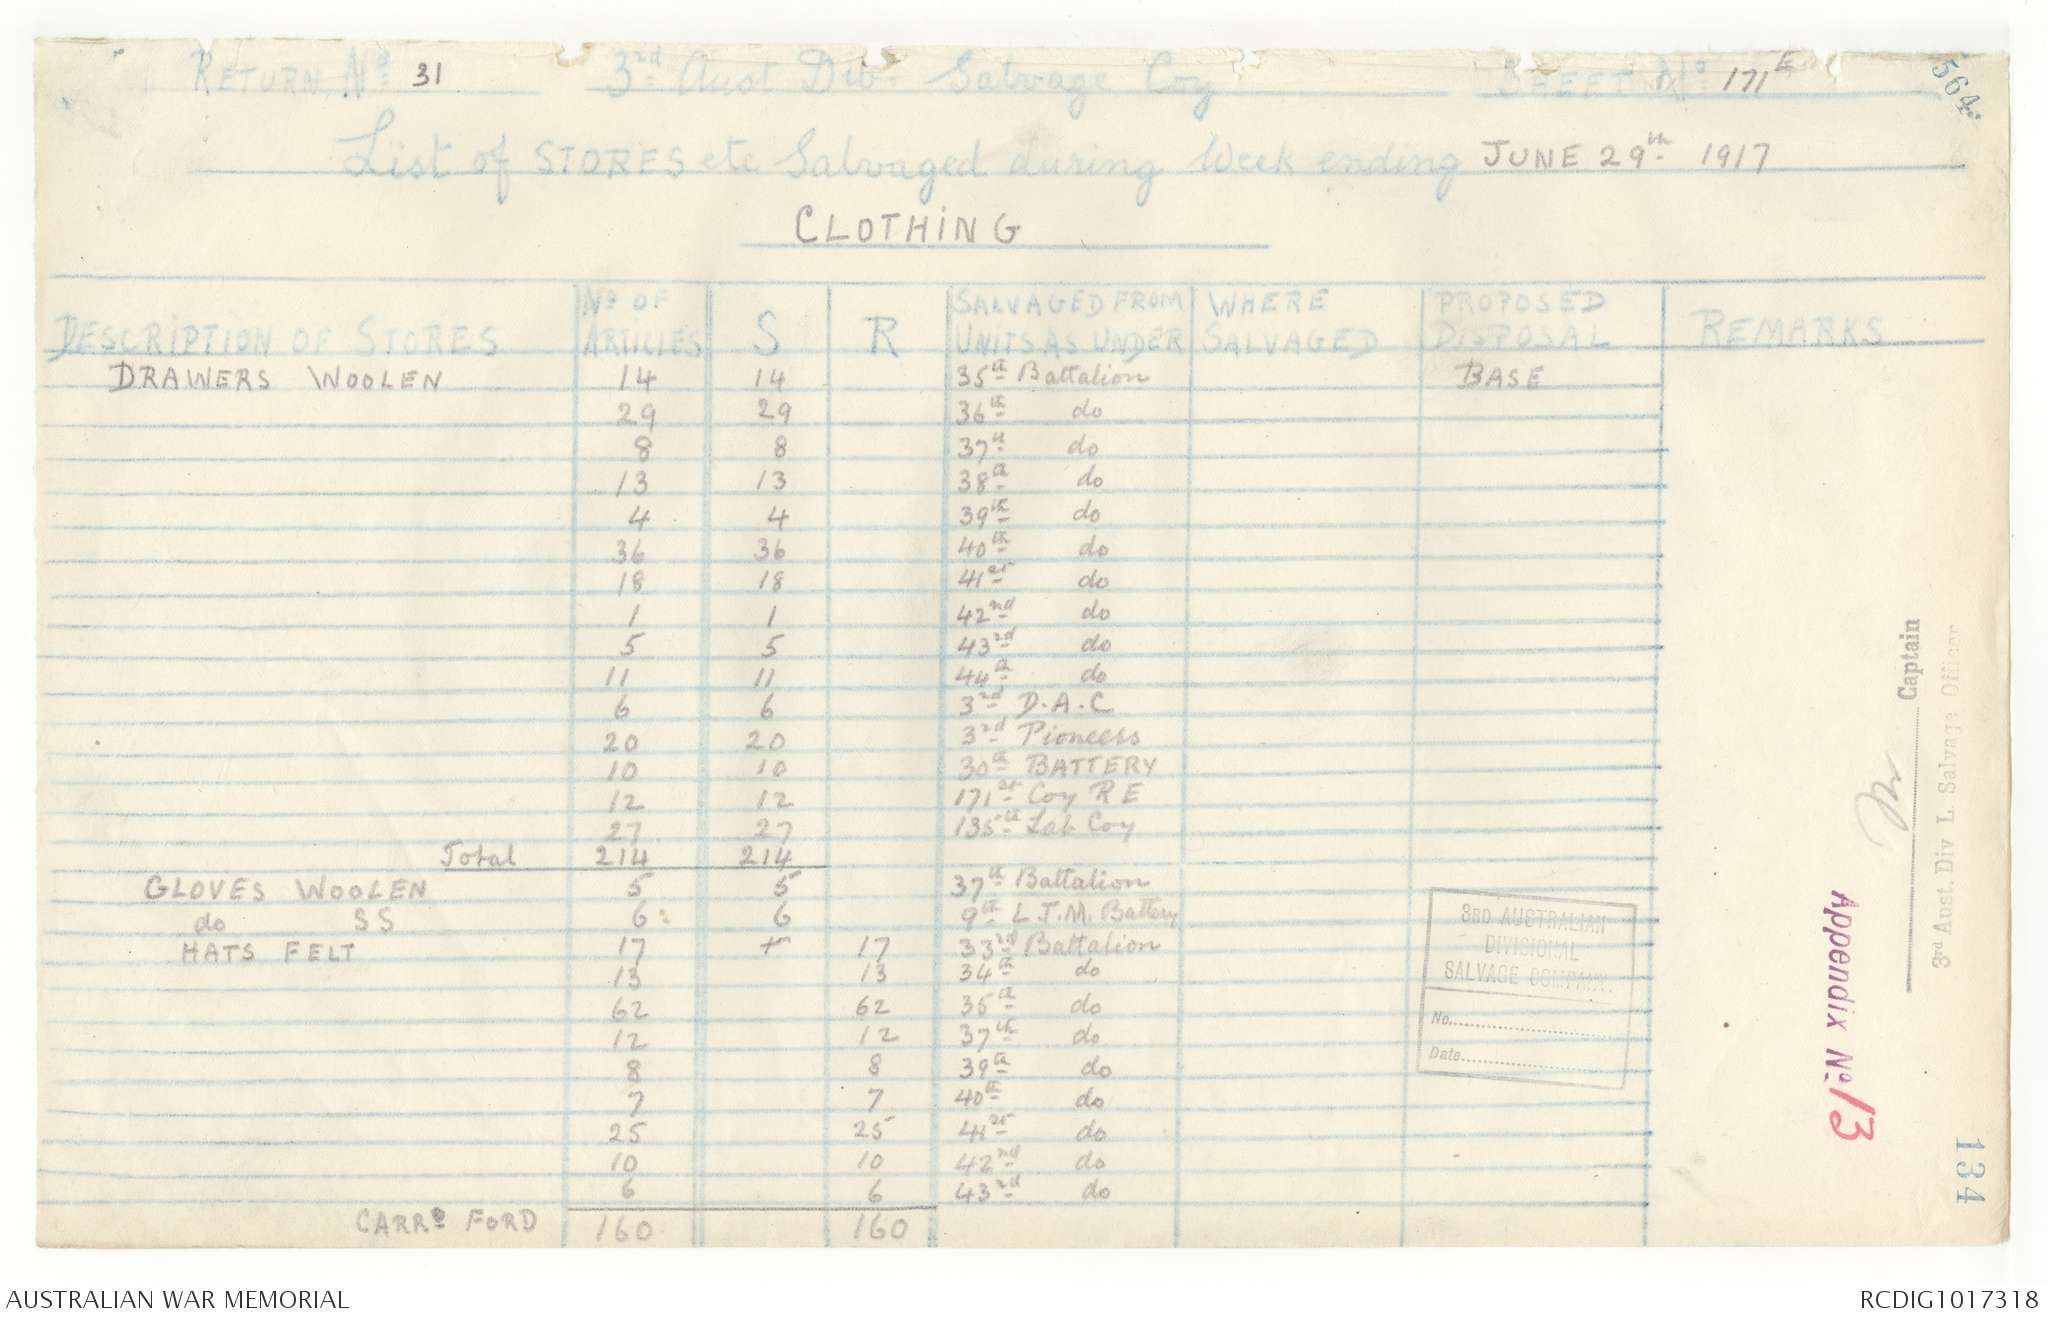 RETURN No. 31 3rd Aust Div. Salvage Coy SHEET No. 171E
564.
List of STORES etc Salvaged during Week ending JUNE 29th 1917
CLOTHING
DESCRIPTION OF STORES | No OF ARTICLES | S | R | SALVAGED FROM UNITS AS UNDER | WHERE SALVAGED | PROPOSED DISPOSAL | REMARKS
DRAWERS WOOLEN 14 14 35th Battalion BASE
29 29 36th do
8 8 37th do
13 13 38th do
4 4 39th do
36 36 40th do
18 18 41st do
1 1 42nd do
5 5 43rd do
11 11 44th do
6 6 3rd D.A.C
20 20 3rd Pioneers
10 10 30th BATTERY
12 12 171st Coy R E
27 27 135th Lab Coy
Total 214 214
GLOVES WOOLEN 5 5 37th Battalion
do SS 6 6 9th L.T.M. Battery
HATS FELT 17 17 33rd Battalion
13 13 34th do
62 62 35th do
12 12 37th do
8 8 39th do
7 7 40th do
25 25 41st do
10 10 42nd do
6 6 43rd do
CARRD FORD 160 160
3RD AUSTRALIAN
DIVISIONAL
SALVAGE COMPANY.
No.
Date
Captain
3rd Aust. Div L Salvage Officer
Appendix No. 13
134
AUSTRALIAN WAR MEMORIAL RCDIG1017318